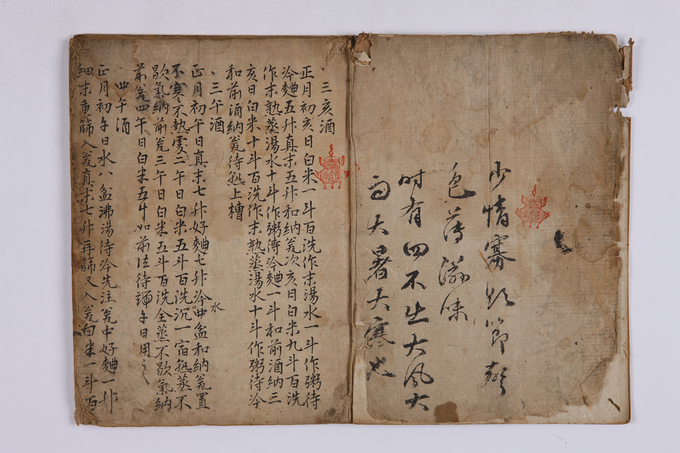 少情寡欲節聲
色薄滋味
時有四不出大風大
雨大暑大寒也
三亥酒
正月初亥日白米一斗百洗作末湯水一斗作粥待
冷麯五升真末五升和納瓮次亥日白米九斗百洗
作末熟蒸湯水十斗作粥待冷麯一斗和前酒納三
亥日白米十斗百洗作末熟蒸湯水十斗作粥待冷
和前酒納瓮待熟上槽
三午酒
正月初午日真末七升好麯七升冷水中盆和納瓮置
不寒不熱處二午日白米五斗百洗沉一宿熟蒸不
歇氣納前瓮三午日白米五斗百洗全蒸不歇氣納
前瓮四午日白米五斗如前法待端午日用之
四午酒
正月初午日水八盆沸湯待冷先注瓮中好麯一升
細末重篩入瓮真末七升再篩又入瓮白米一斗百